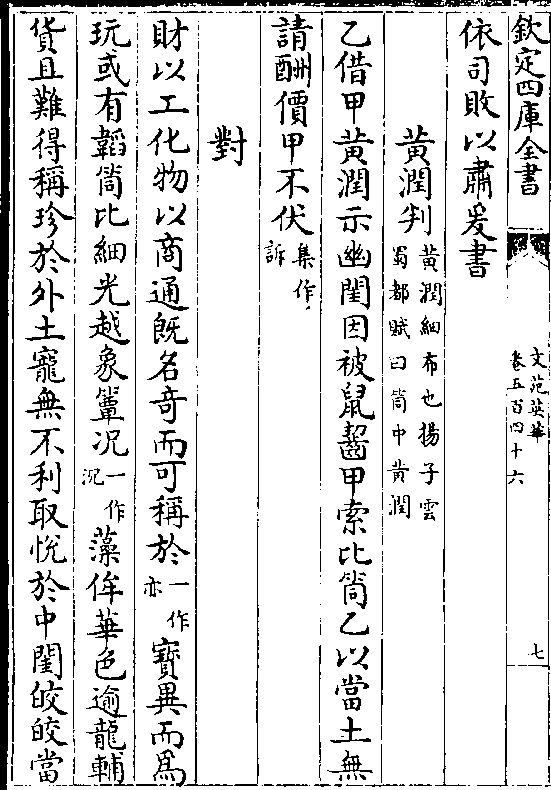 欽定四庫全書
文苑英華
卷五百四十六
七
依司敗以肅爰書
黃潤判黃潤細布也揚子雲蜀都賦曰筒中黃潤
乙借甲黃潤示幽閨因被鼠齧甲索比筒乙以當土無
請酬價甲不伏集作訴
對
財以工化物以商通既名奇而可稱於一作亦寶異而爲
玩或有韜筒比細光越象簟况一作況藻侔華色逾龍輔
貨且難得稱珍於外土寵無不利取悅於中閨皎皎當